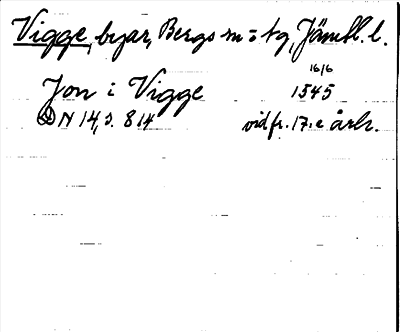 Vigge, byar, Bergs sn o tg, Jämtl. l.
16/6
Jon i Vigge 1545
N 14, s. 814 vid fr. 17.e årh.